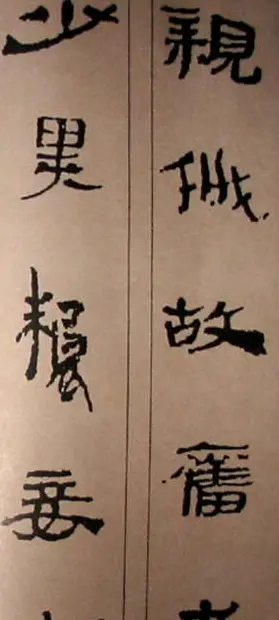 親戚故舊
少異糧妾